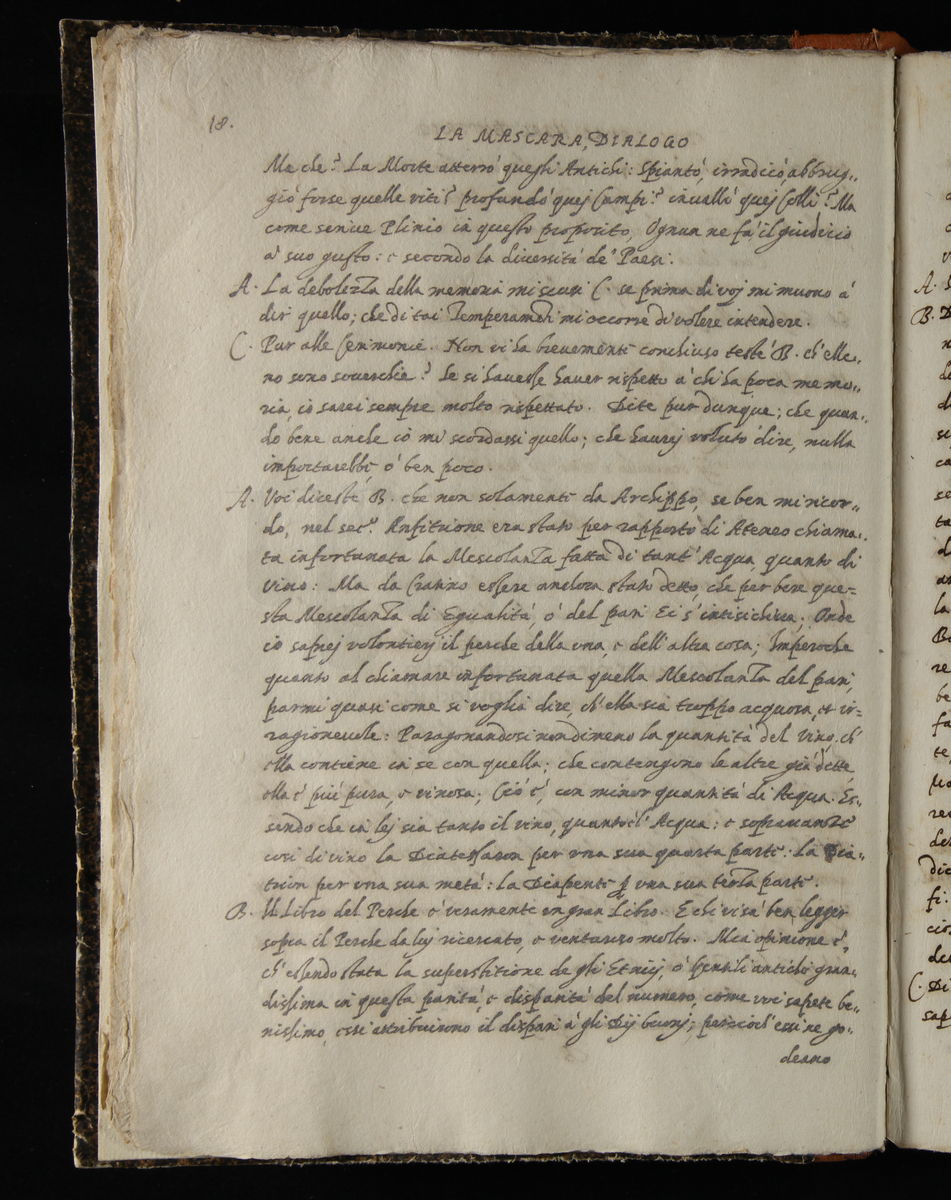 18.
LA MASCARA, DIALOGO
Ma che? La Morte atterrò quegli Antichi: spiantò, irradicò, abbrug,,
giò forse quelle viti? profundò quej Campi? invallò quej Colli? Ma
come scriue Plinio in questo proposito, Ognun ne fà il giudicio
a' suo gusto: e secondo la diuersità de' Paesi.
A. La debolezza della memoria mi scusi C. se prima di voj mi muouo à
dir quello; che di tai Temperamenti mi occorre di volere intendere.
C. Pur alle Cerimonie. Non vi ha breuemente conchiuso testè B. ch'elle,,
no sono souerchie? Se si hauesse hauer rispetto à chi ha poca memo,,
ria, io sarei sempre molto rispettato. Dite pur dunque; che quan,,
do bene anche io mi scordassi quello; che haurej voluto dire, nulla
importarebbe, ò ben poco.
A. Voi diceste, B. che non solamente da Archippo, se ben mi ricor,,
do, nel sec.º Anfitrione era stato per rapporto di Ateneo chiama,,
ta infortunata la Mescolanza fatta di tant' Acqua, quanto di
vino: Ma da Cratino essere ancora stato detto, che per bere que=
sta Mescolanza di Egualità, ò del pari Ei s'intisichiua; Onde
io saprej volontierj il perche della una, e dell'altra cosa; Imperoche
quanto al chiamare infortunata quella Mescolanza del pari,
parmi quasi come si voglia dire, ch'ella sia troppo acquosa, et ir=
ragioneuole: Paragonandosi nondimeno la quantità del vino, ch'
ella contiene in se con quella; che contengono le altre già dette,
ella è più pura, e vinosa; Ciò è, con minor quantità di Acqua. Es,,
sendo che in lej sia tanto il vino, quanto l'Acqua: e soprauanze
così di vino la Diatessaron per vna sua quarta parte: La Dia,,
trion per vna sua metà: la Diapente p vna sua terza parte.
B. Il Libro del Perche è veramente un gran Libro. E chi vi sà ben legger
sopra il Perche da luj ricercato, è venturoso molto. Mia opinione è,
ch'essendo stata la superstitione de gli Etnicj, ò Gentili antichi gran,,
dissima in questa parità, e disparità del numero, come voi sapete be,,
nissimo, essi attribuirono il dispari à gli Dij buonj; percioch'essi ne go,,
deano
A.
B. D
C. Di
sap